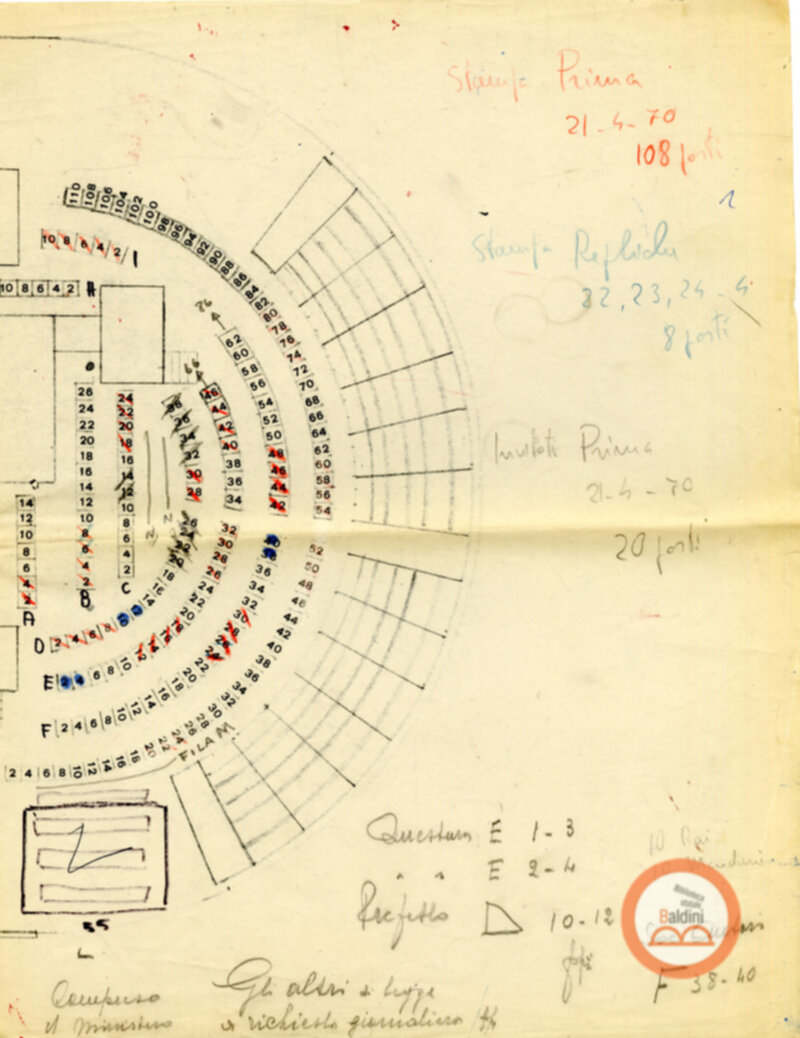 Stampa Prima
21-4-70
108 posti
1
Stampa Repliche
22, 23, 24 - 4
8 posti
Invitati Prima
21-4-70
20 posti
110 108 106 104 102 100 98 96 94 92 90 88 86 84 82 80 78 76 74 72 70 68 66 64 62 60 58 56 54
52 50 48 46 44 42 40 38 36 34 32 30 28 26 24 22 20 18 16 14 12 10 8 6 4 2
FILA M
10 8 6 4 2 I
10 8 6 4 2 H
86
62 60 58 56 54 52 50 48 46 44 42
36 34 32 30
22 20 18 16 14 12 10 8 6 4 2 F
66
46 44 42 40 38 36 34
32 30 28 26 24 22 20
12 10 8 6 4 2 E
36 34 32 30 28
26
18 16 14
8 6 4 2 D
26 24 22 20 18 16 14 12 10 8 6 4 2 B
24 22 20 18 16 14 12 10 8 6 4 2 C
14 12 10 8 6 4 2 A
N N
Questura E 1-3
" " E 2-4
Prefetto D 10-12
F 38-40
10 Rai
55
L
Compreso
il Ministero
Gli altri
a richiesta giornaliera
Biblioteca
statale
Baldini